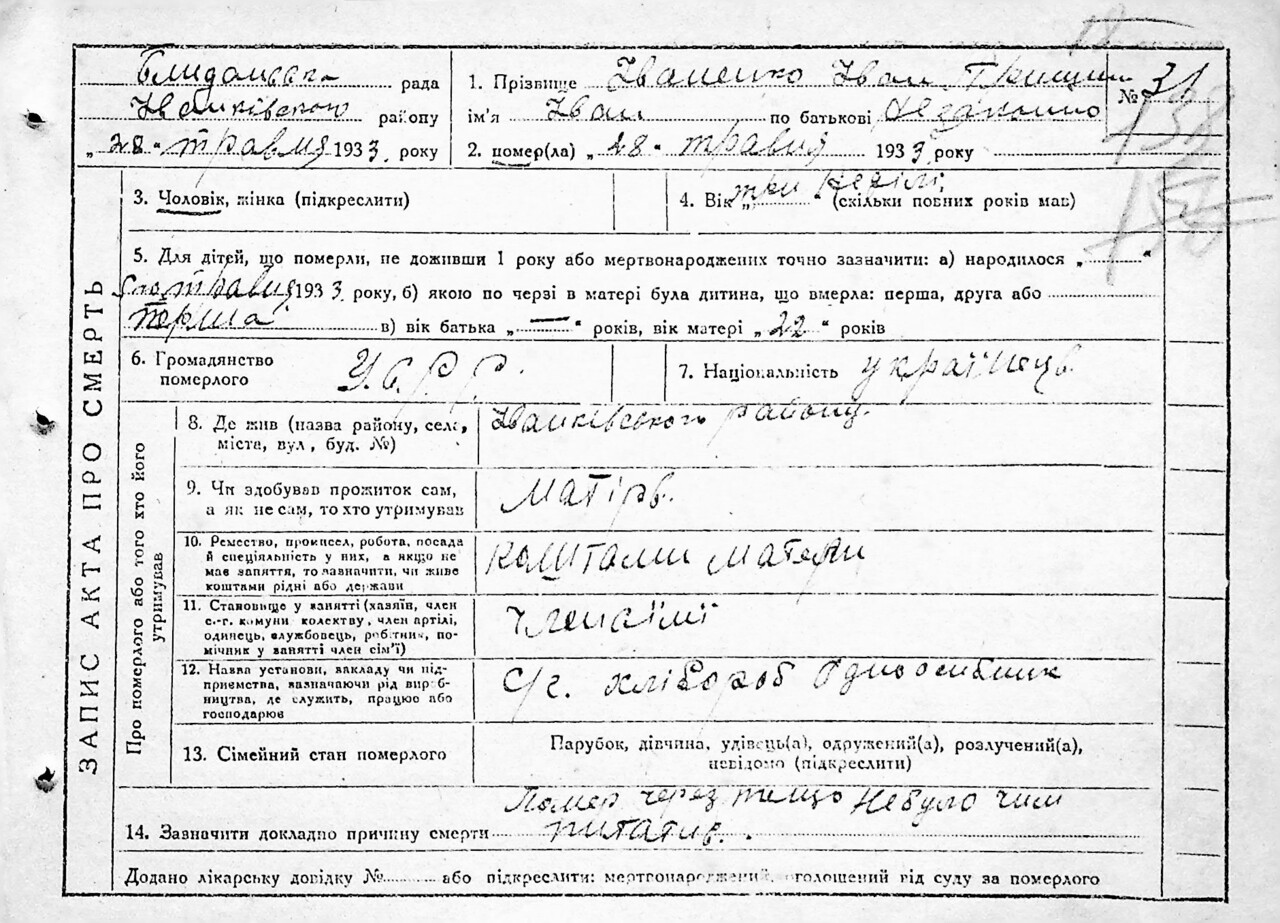 ЗАПИС АКТА ПРО СМЕРТЬ
рада
Іванківського району
„28“ травня 1933 року
1. Прізвище Іваненко Іван
ім'я Іван по батькові
2. помер(ла) „28“ травня 1933 року
№ 31
138
3. Чоловік, жінка (підкреслити)
4. Вік „три неділі“ (скільки повних років мав)
5. Для дітей, що померли, не доживши 1 року або мертвонароджених точно зазначити: а) народилося „
травня 1933 року, б) якою по черзі в матері була дитина, що вмерла: перша, друга або
перша в) вік батька „—“ років, вік матері „22“ років
6. Громадянство померлого У.С.Р.Р.
7. Національність українець.
Про померлого або того хто його утримував
8. Де жив (назва району, села, міста, вул, буд. №) Іванківського району.
9. Чи здобував прожиток сам, а як не сам, то хто утримував матірь.
10. Ремество, промисел, робота, посада й спеціяльність у них, а якщо не має заняття, то зазначити, чи живе коштами рідні або держави коштами матери
11. Становище у занятті (хазяїн, член с.-г. комуни колектву, член артілі, одинець, службовець, робітник, помічник у занятті член сім'ї) член сімї
12. Назва установи, закладу чи підприемства, зазначаючи рід виробництва, де служить, працює або господарює с/г. хлібороб одноосибник
13. Сімейний стан померлого Парубок, дівчина, удівець(а), одружений(а), розлучений(а), невідомо (підкреслити)
14. Зазначити докладно причину смерти Помер через те що не було чим питатив.
Додано лікарську довідку № або підкреслити: мертвонароджений, оголошений від суду за померлого